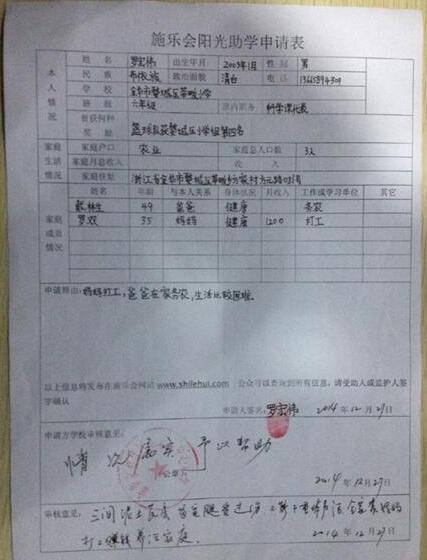 施乐会阳光助学申请表
本人情况 姓名 罗宏伟 出生年月 2003年1月 性别 男
民族 布依族 政治面貌 清白 电话
学校 金华市婺城区 小学
班级 六年级 班内职务 科学课代表
曾获何种奖励 篮球队获婺城区小学组第四名
家庭生活情况 家庭户口 农业 家庭总人口数 3人
家庭月总收入 收入
家庭住址 浙江省金华市婺城区
家庭成员情况 姓名 年龄 与本人关系 身体状况 月收入 工作或学习单位 其它
49 爸爸 健康 务农
罗双 35 妈妈 健康 1200 打工
申请理由：妈妈打工，爸爸在家务农，生活比较困难。
以上信息将发布在施乐会网站www.shilehui.com，公众可以查询到所有信息，请受助人或监护人签
字确认
申请人签名：罗宏伟 2014年12月27日
申请方学校审核意见：
情况属实 予以帮助
公章：
2014年12月27日
审核意见：三间泥土瓦房
打工赚钱养活家庭。 2014年12月27日